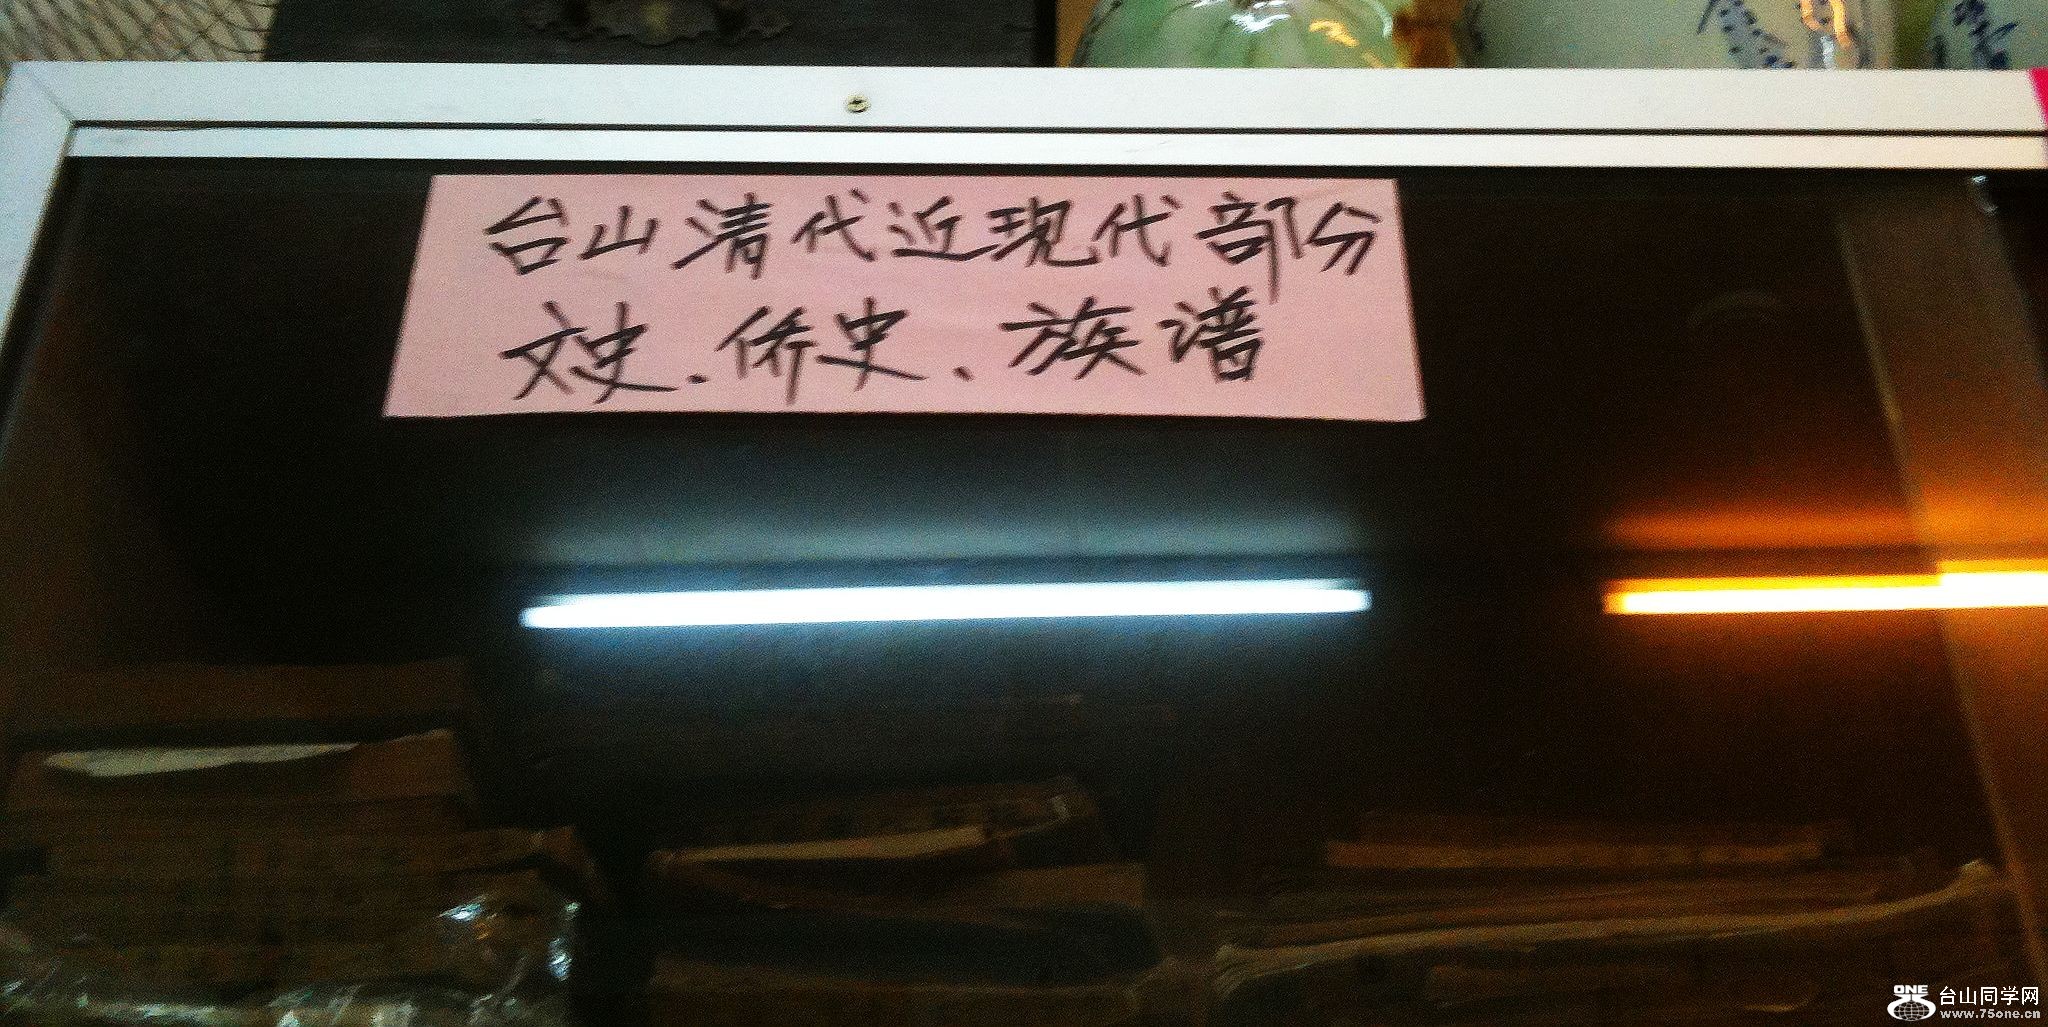 台山清代近现代部分
文史.侨史、族谱
ONE 台山同学网
www.75one.cn